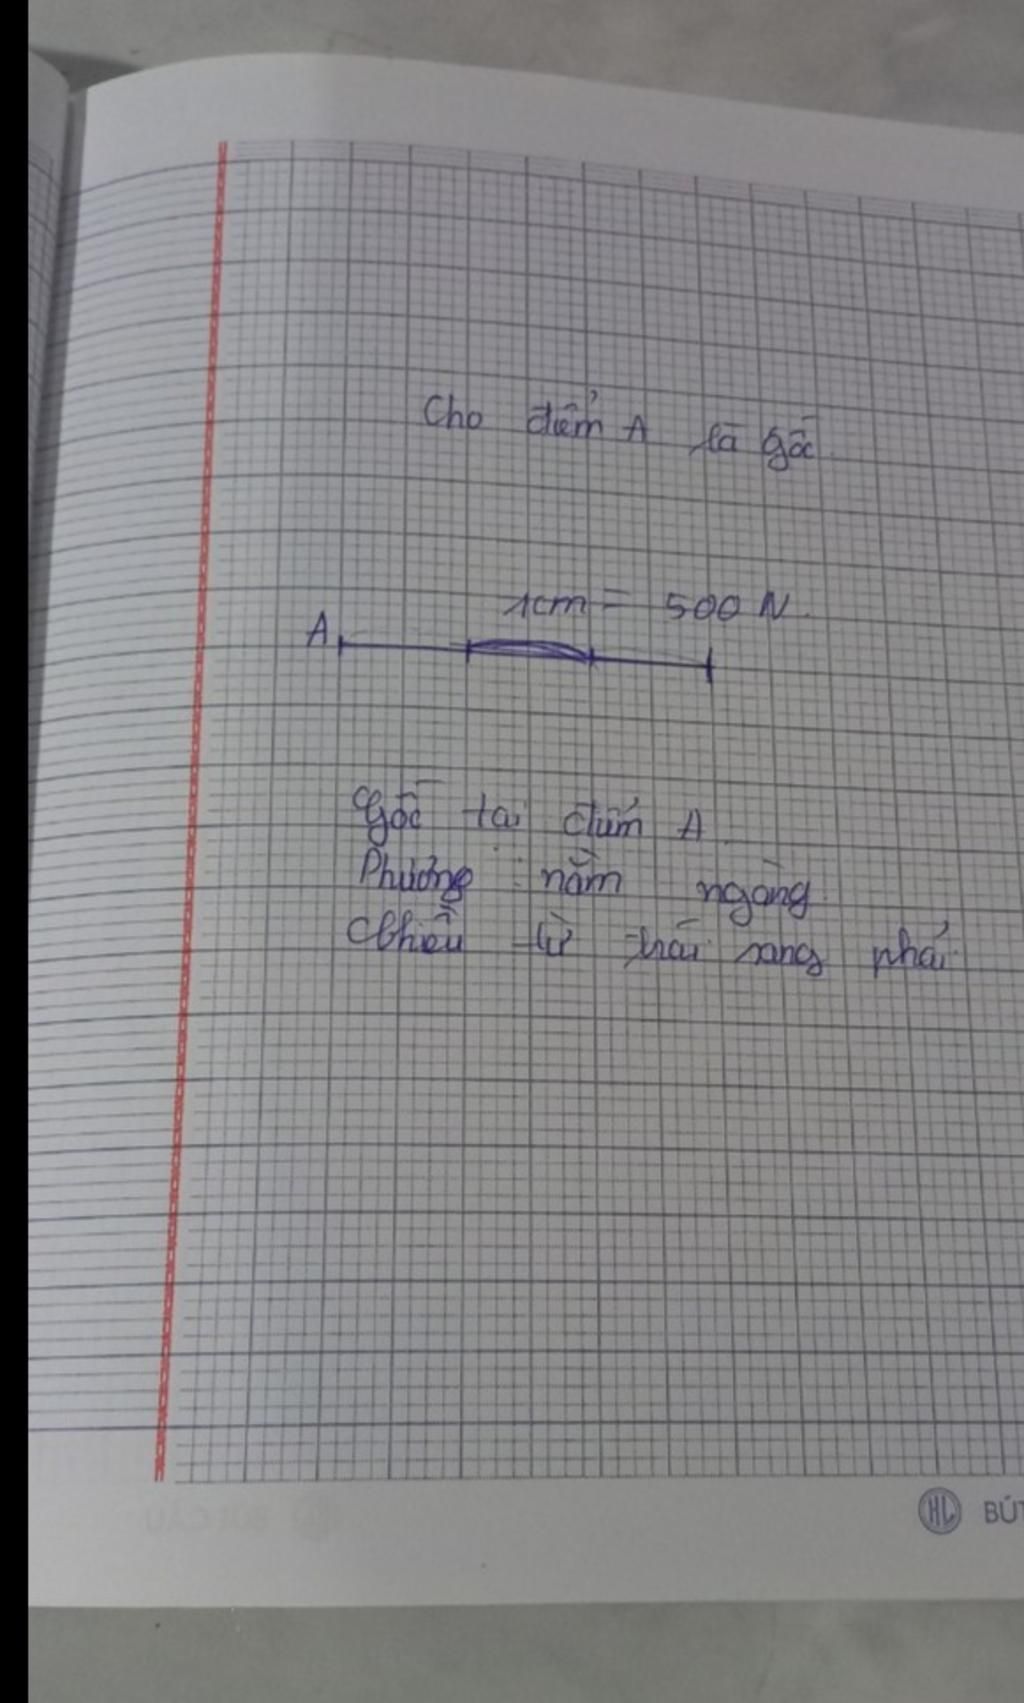 Cho điểm A là gốc
1cm = 500 N
A
Gốc tại điểm A
Phương : nằm ngang
Chiều từ trái sang phải
HL BÚT